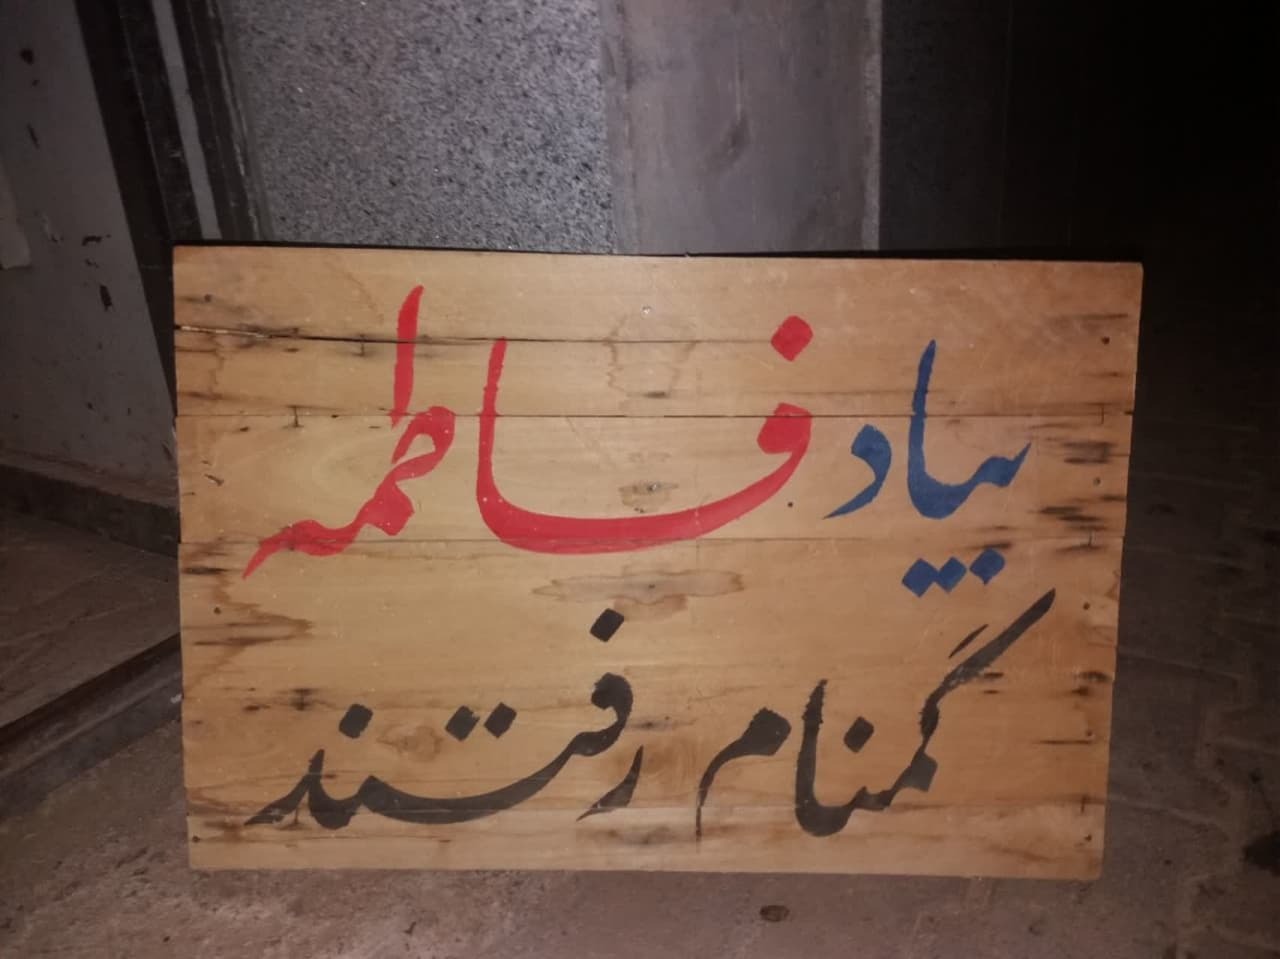 بیاد فاطمه
گمنام رفتند